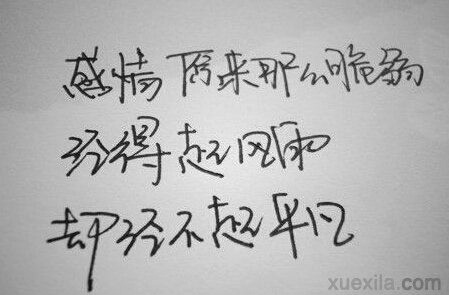 感情原来那么脆弱
经得起风雨
却经不起平凡
xuexila.com